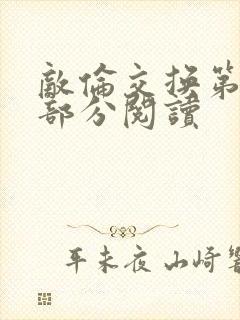 敵倫交換第
部分閱讀
平未夜 山崎響